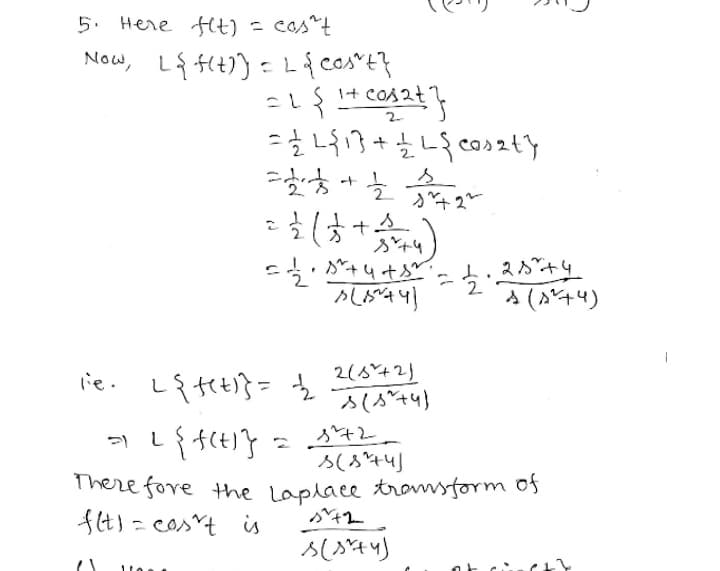 5. Here f(t) = cos²t
Now, L{f(t)} = L{cos²t}
= L { (1+cos2t)/2 }
= 1/2 L{1} + 1/2 L{cos2t}
= 1/2 · 1/s + 1/2 s/(s²+2²)
= 1/2 (1/s + s/(s²+4))
= 1/2 · (s²+4+s²)/(s(s²+4)) = 1/2 · (2s²+4)/(s(s²+4))
i.e. L{f(t)} = 1/2 2(s²+2)/(s(s²+4))
⇒ L{f(t)} = (s²+2)/(s(s²+4))
Therefore the Laplace transform of
f(t) = cos²t is (s²+2)/(s(s²+4))